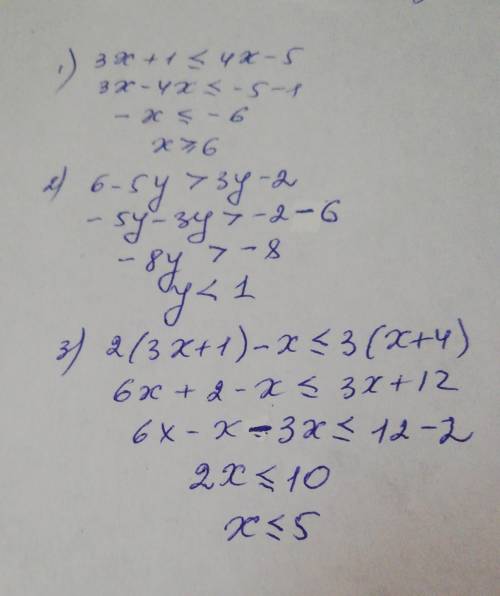 1) 3x+1 ≤ 4x-5
3x-4x ≤ -5-1
-x ≤ -6
x ≥ 6
2) 6-5y > 3y-2
-5y-3y > -2-6
-8y > -8
y < 1
3) 2(3x+1)-x ≤ 3(x+4)
6x+2-x ≤ 3x+12
6x-x-3x ≤ 12-2
2x ≤ 10
x ≤ 5